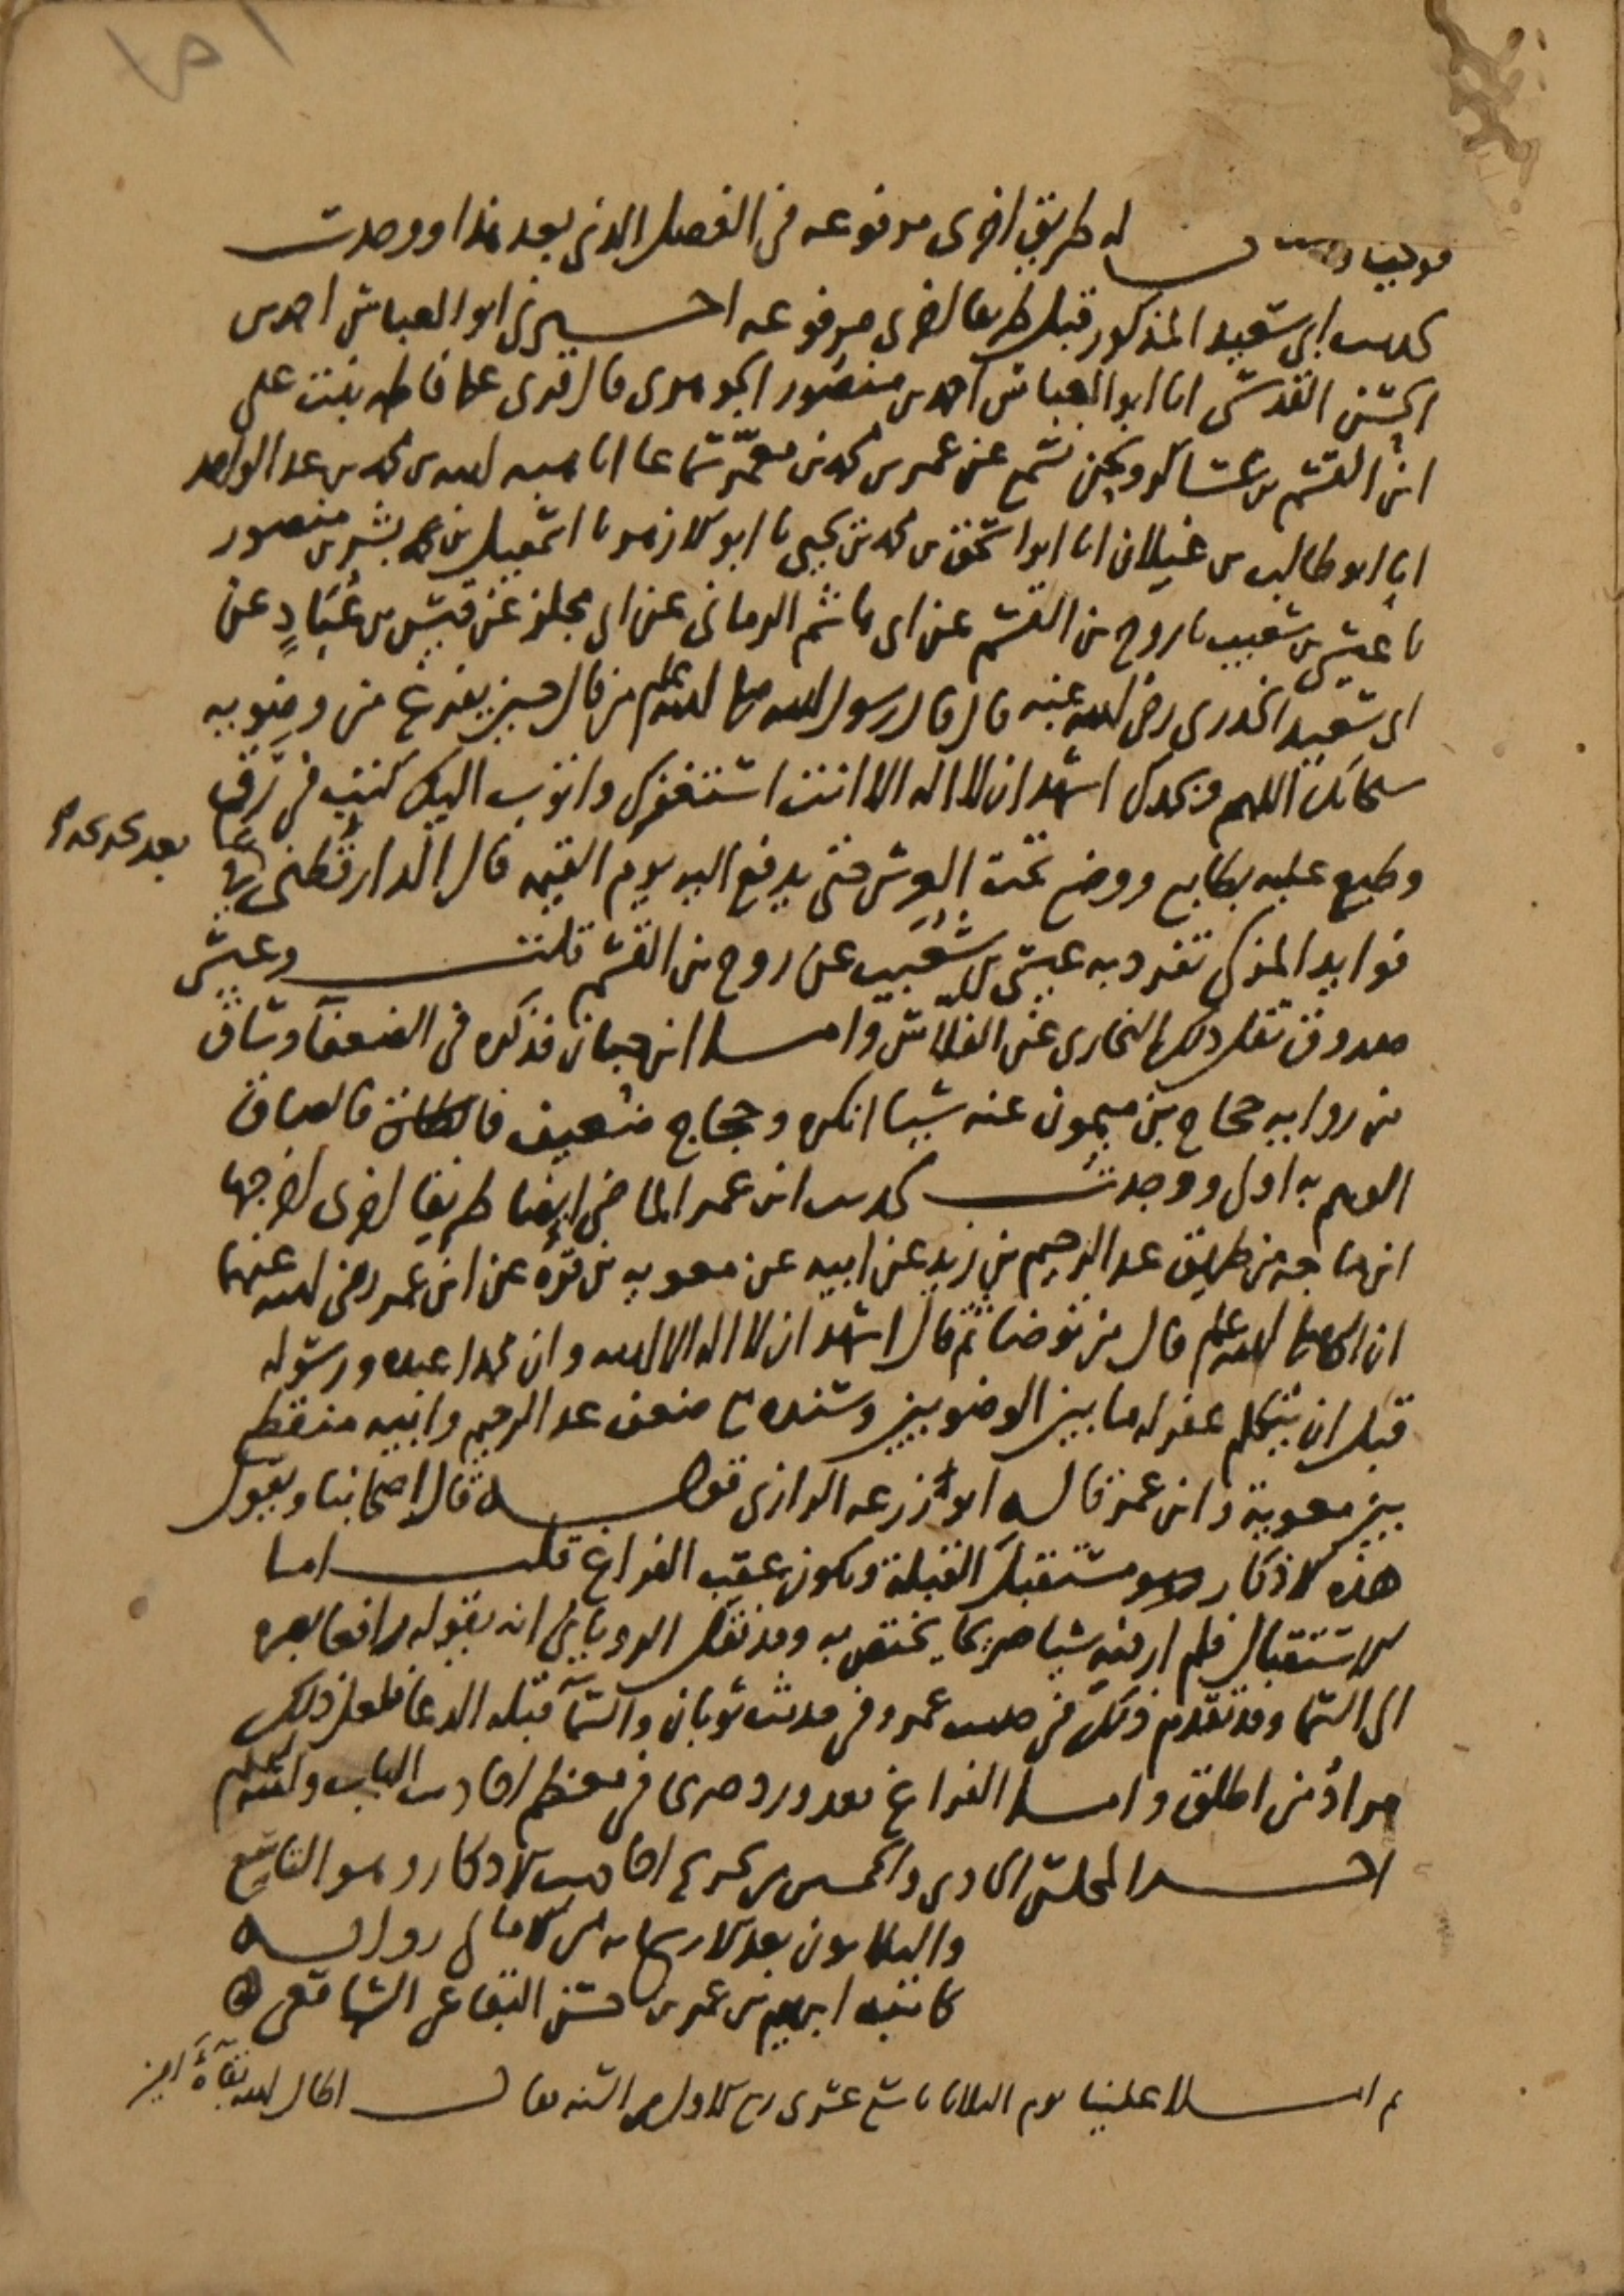 ١٥١
له طريق اخرى مرفوعه في الفصل الذي بعد هذا ووجدت
لحديث ابي سعيد المذكور قبل طريقا اخرى مرفوعه اخبرني ابو العباس احمد بن
الحسن القدسي انا ابو العباس احمد بن منصور الجوهري قال قرئ على فاطمه بنت علي
ابن القسم بن عساكر ونحن نسمع عن عمر بن محمد بن معمر سماعا انا هبه الله بن محمد بن عبد الواحد
انا ابو طالب بن غيلان انا ابو اسحق بن محمد بن يحيى نا ابو الازهر نا اسمعيل بن بشر بن منصور
نا عيسى بن شعيب نا روح بن القسم عن ابي هاشم الرماني عن ابي مجلز عن قيس بن عُبَادٍ عن
ابي سعيد الخدري رضي الله عنه قال قال رسول الله صلى الله عليه وسلم من قال حين يفرغ من وضويه
سبحانك اللهم وبحمدك اشهد ان لا اله الا انت استغفرك واتوب اليك كتب في رق
وطبع عليه بطابع ووضع تحت العرش حتى يدفع اليه يوم القيمه قال الدارقطني في
فوايد المزكي تفرد به عيسى بن شعيب عن روح بن القسم قلت وعيسى
صدوق نقل ذلك البخاري عن الفلاس واما ابن حبان فذكره في الضعفآ وساق
من روايه حجاج بن ميمون عنه شيا انكره وحجاج ضعيف فالصاق
الوهم به اولى ووجدت لحديث ابن عمر الماضي ايضا طريقا اخرى اخرجها
ابن ماجه من طريق عبد الرحيم بن زيد عن ابيه عن معويه بن قره عن ابن عمر رضي الله عنهما
ان النبي صلى الله عليه وسلم قال من توضا ثم قال اشهد ان لا اله الا الله وان محمدا عبده ورسوله
قبل ان يتكلم غفر له ما بين الوضويين وسنده مع ضعف عبد الرحيم وابيه منقطع
بين معوية وابن عمر قاله ابو زرعه الرازي قوله قال اصحابنا ويقول
هذه الاذكار مستقبل القبلة ويكون عقب الفراغ قلت اما
الاستقبال فلم ار فيه شيا صريحا يختص به وقد نقل الروياني انه يقوله رافعا بصره
الى السما وقد تقدم ذلك في حديث عمر وفي حديث ثوبان والسمآ قبله الدعا فلعل ذلك
مراد من اطلق واما الفراغ فقد ورد صريحا في معظم احاديث الباب والله اعلم
اخر المجلس الحادي والخمسين من تخريج احاديث الاذكار وهو التاسع
والثلاثون بعد الاربعمايه من الامالي روايه
كاتبه ابرهيم بن عمر بن حسن البقاعي الشافعي
ثم املا علينا يوم الثلاثا تاسع عشري ربيع الاول من السنه فقال اطال الله بقآه امين